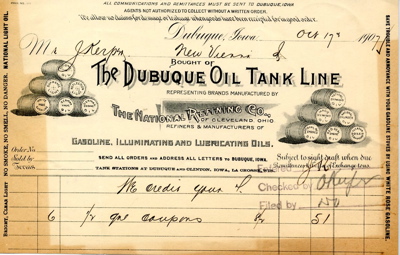 ALL COMMUNICATIONS AND REMITTANCES MUST BE SENT TO DUBUQUE, IOWA
AGENTS NOT AUTHORIZED TO COLLECT WITHOUT A WRITTEN ORDER.
We allow no claims for damage or leakage when goods have been receipted for in good order.
Dubuque, Iowa, Oct 17 1917
M J Keiper
New Vienna
BOUGHT OF
THE DUBUQUE OIL TANK LINE
REPRESENTING BRANDS MANUFACTURED BY
THE NATIONAL REFINING CO.,
OF CLEVELAND, OHIO
REFINERS & MANUFACTURERS OF
GASOLINE, ILLUMINATING AND LUBRICATING OILS.
SEND ALL ORDERS AND ADDRESS ALL LETTERS TO DUBUQUE, IOWA.
TANK STATIONS AT DUBUQUE AND CLINTON, IOWA, LA CROSSE,
Order No.
Sold by
Terms
Subject to sight draft when due
Exchange
Checked by
Filed by
We credit your
6 1/2 gal coupons 51
BRIGHT, CLEAR LIGHT NO SMOKE, NO SMELL, NO DANGER. NATIONAL LIGHT OIL
EASY TROUBLE AND ANNOYANCE WITH YOUR GASOLINE STOVES BY USING WHITE ROSE GASOLINE.